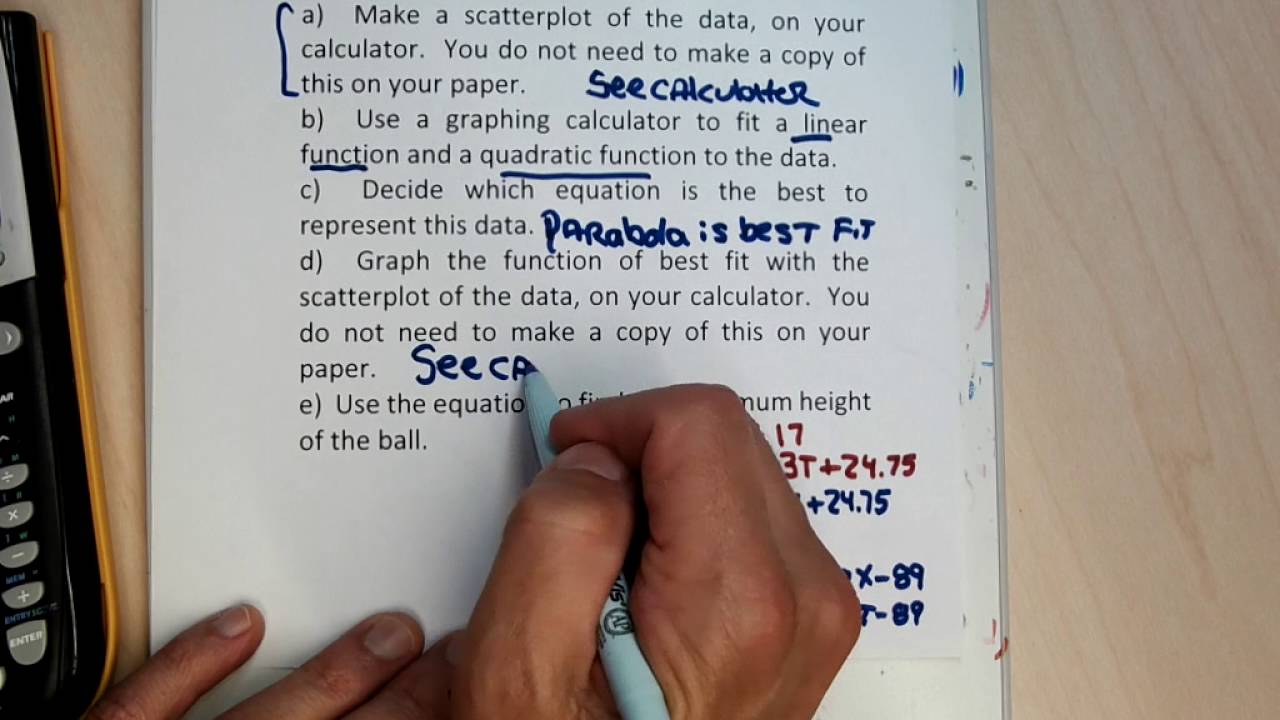 a) Make a scatterplot of the data, on your
calculator. You do not need to make a copy of
this on your paper. See CAlculatteR
b) Use a graphing calculator to fit a linear
function and a quadratic function to the data.
c) Decide which equation is the best to
represent this data. PARabola is best FiT
d) Graph the function of best fit with the
scatterplot of the data, on your calculator. You
do not need to make a copy of this on your
paper. See CA
e) Use the equatio height
of the ball.
17
3T+24.75
+24.75
X-89
T-89
ENTER